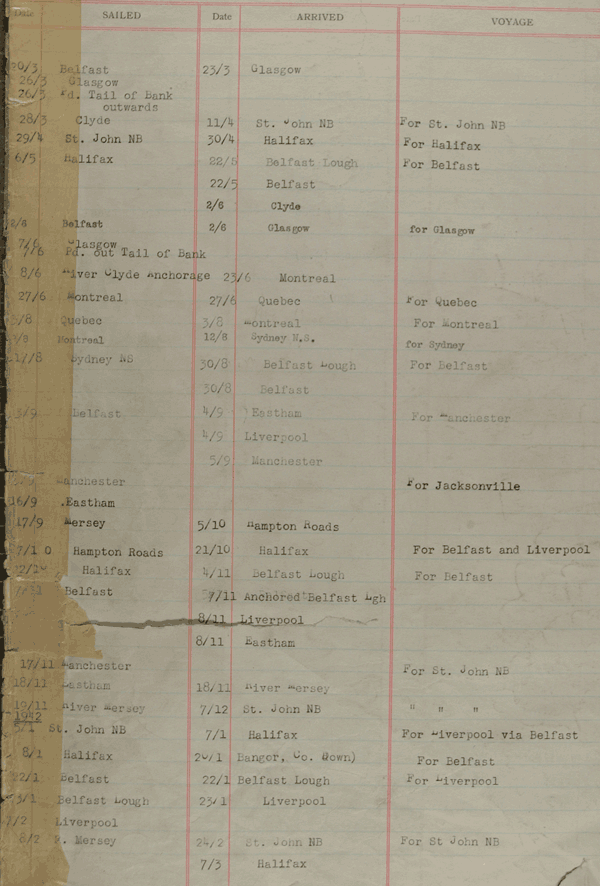 Date SAILED Date ARRIVED VOYAGE
20/3 Belfast 23/3 Glasgow
26/3 Glasgow
26/3 Pd. Tail of Bank
outwards
28/3 Clyde 11/4 St. John NB For St. John NB
29/4 St. John NB 30/4 Halifax For Halifax
6/5 Halifax 22/5 Belfast Lough For Belfast
22/5 Belfast
2/6 Clyde
2/6 Belfast 2/6 Glasgow for Glasgow
7/6 Glasgow
7/6 Pd. out Tail of Bank
8/6 River Clyde Anchorage 23/6 Montreal
27/6 Montreal 27/6 Quebec For Quebec
/8 Quebec 3/8 Montreal For Montreal
/8 Montreal 12/8 Sydney N.S. for Sydney
17/8 Sydney NS 30/8 Belfast Lough For Belfast
30/8 Belfast
3/9 Belfast 4/9 Eastham For Manchester
4/9 Liverpool
5/9 Manchester
Manchester For Jacksonville
16/9 .Eastham
17/9 Mersey 5/10 Hampton Roads
7/10 Hampton Roads 21/10 Halifax For Belfast and Liverpool
Halifax 4/11 Belfast Lough For Belfast
Belfast 7/11 Anchored Belfast Lgh
8/11 Liverpool
8/11 Eastham
17/11 Manchester For St. John NB
18/11 Eastham 18/11 River Mersey
19/11 River Mersey 7/12 St. John NB " " "
1942
5/1 St. John NB 7/1 Halifax For Liverpool via Belfast
8/1 Halifax 20/1 Bangor, Co. Down) For Belfast
22/1 Belfast 22/1 Belfast Lough For Liverpool
23/1 Belfast Lough 23/1 Liverpool
7/2 Liverpool
8/2 R. Mersey 24/2 St. John NB For St John NB
7/3 Halifax